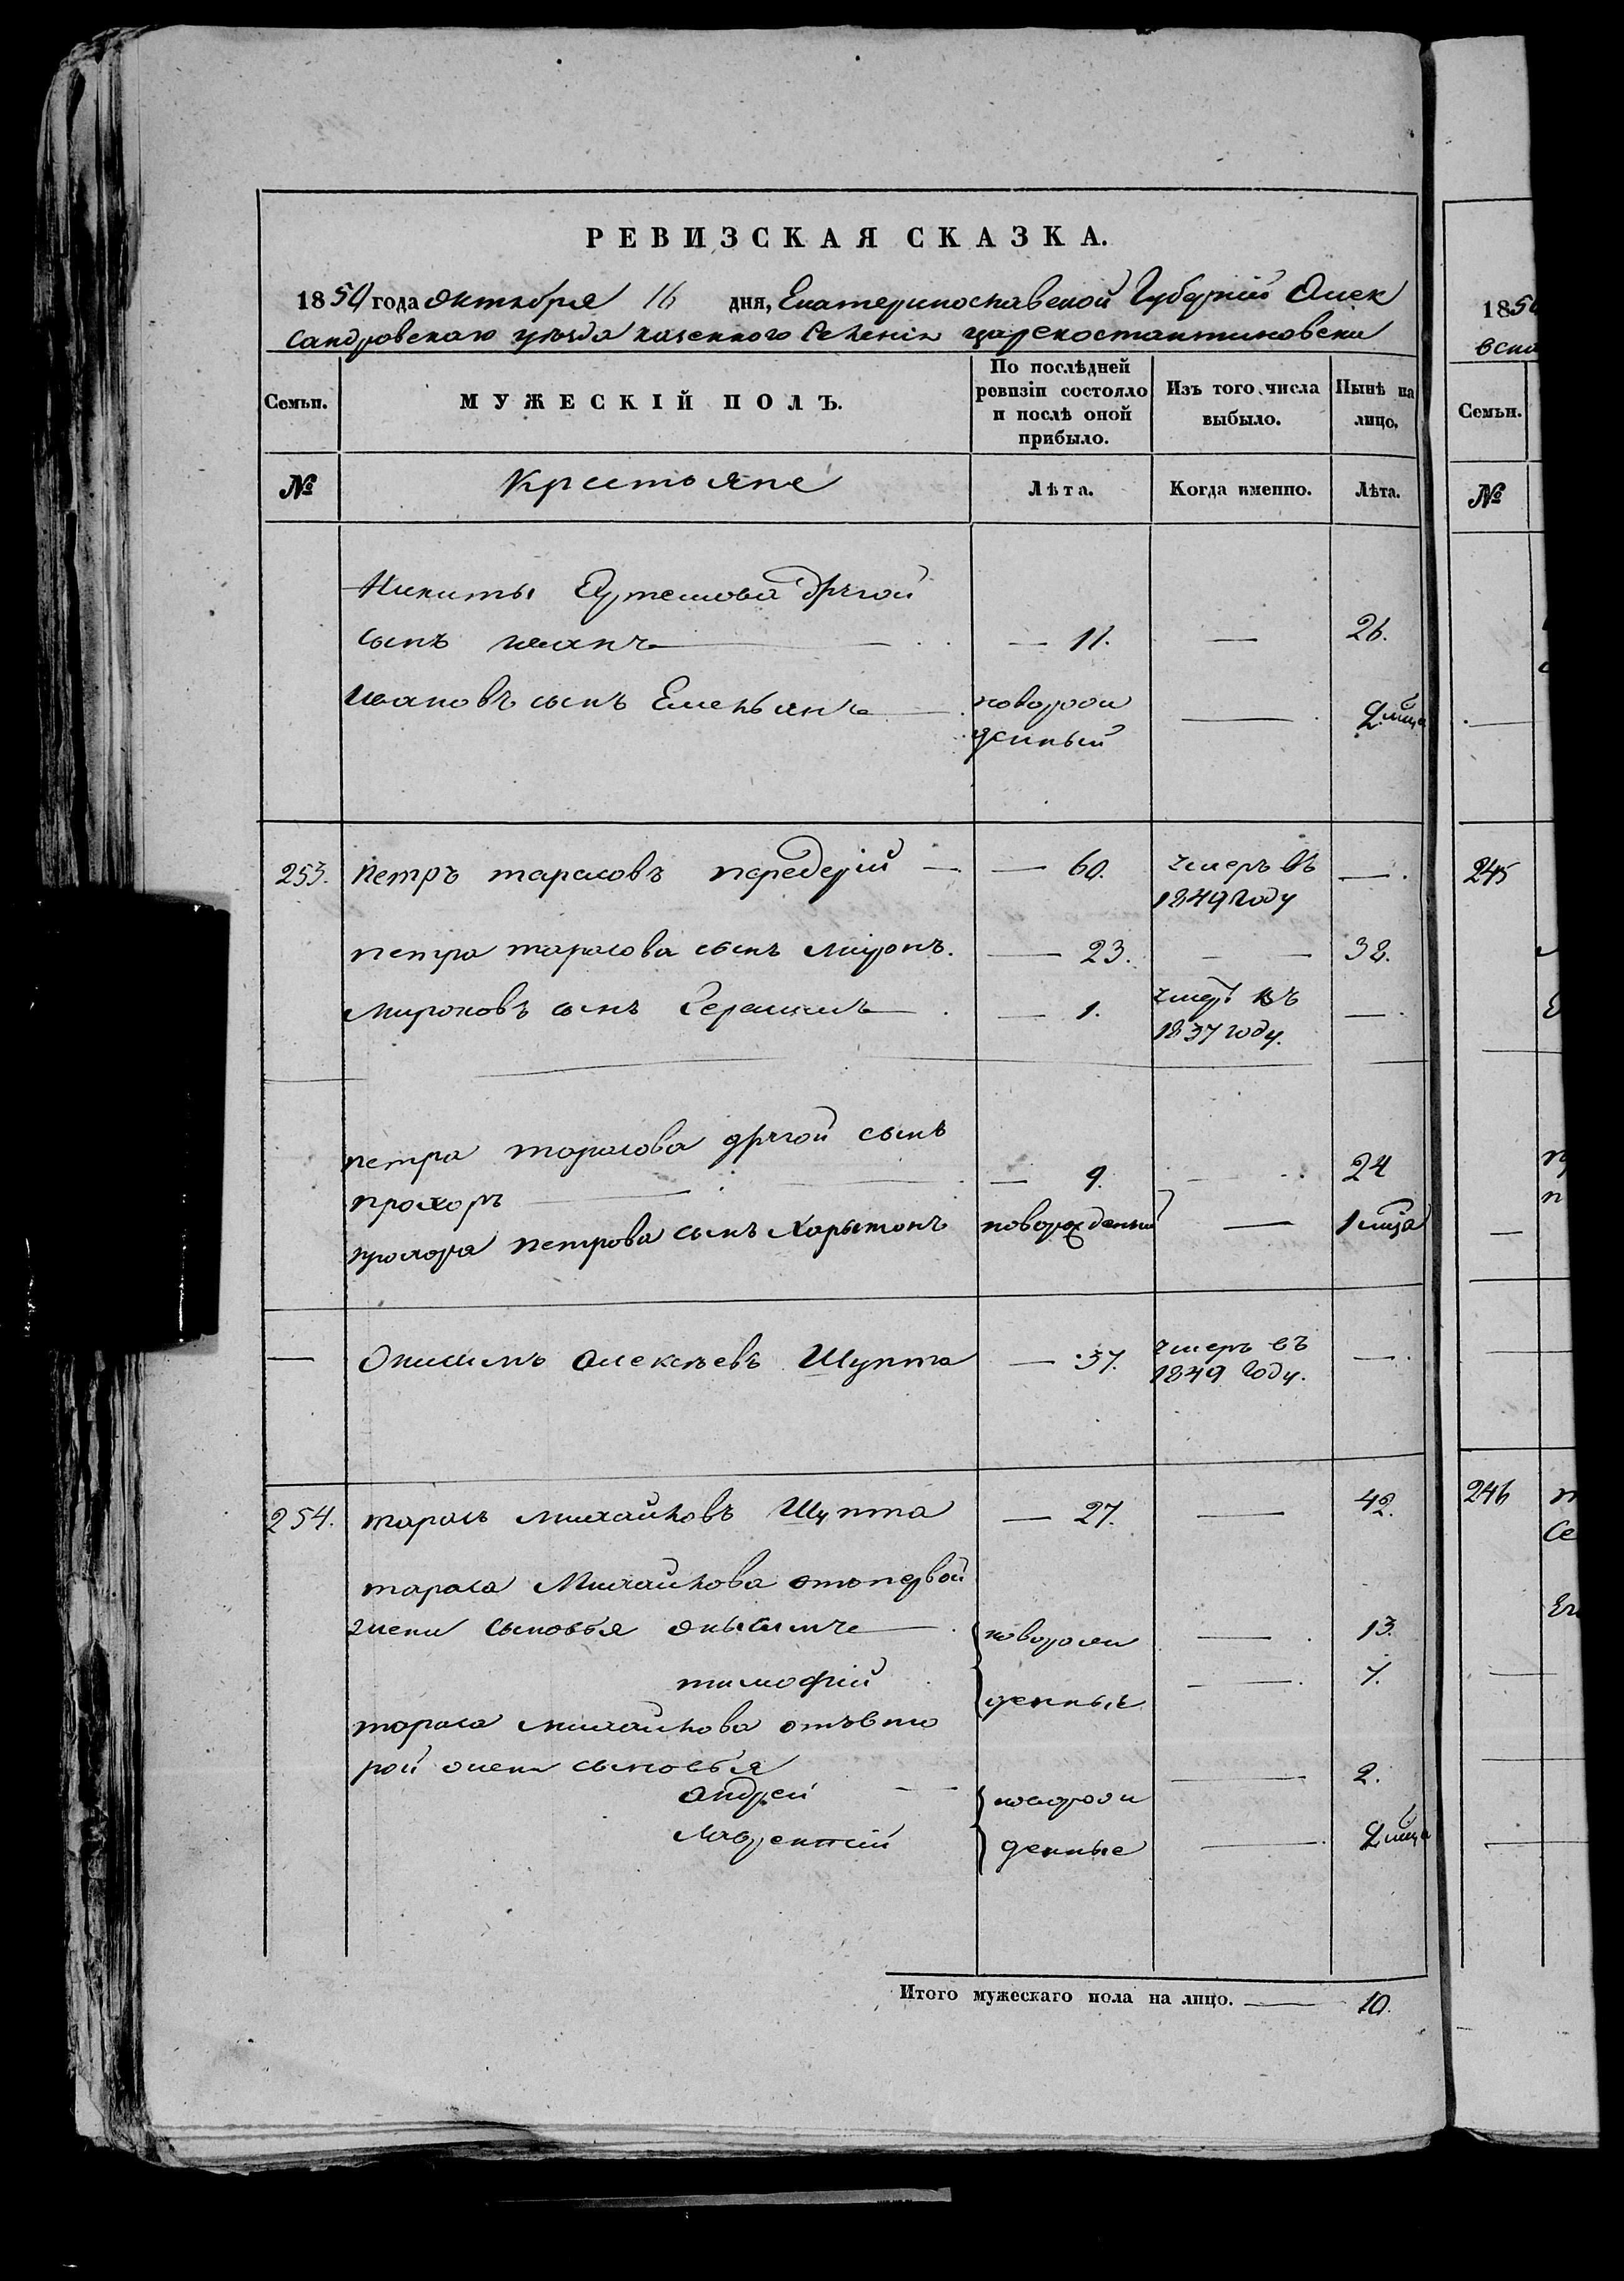 РЕВИЗСКАЯ СКАЗКА.
1850 года октября 16 дня, Екатеринославской Губернии Алек
сандровскаго уезда казенного Селения царекостантиновски
Семьи. МУЖЕСКІЙ ПОЛЪ. По послѣдней ревизіи состояло и послѣ оной прибыло. Изъ того числа выбыло. Нынѣ на лицо.
№ Крестьяне Лѣта. Когда именно. Лѣта.
Никиты Артемова другой
сынъ иванъ — 11. — 26.
Ивановъ сынъ Емельянъ новорож
денный — 2 мца
253. Петръ тарасовъ передерий — 60. умеръ въ —
1849 году
петра тарасова сынъ миронъ. — 23. — 38.
мироновъ сынъ Герасимъ — 1. умеръ въ —
1837 году.
петра тарасова другой сынъ
прохоръ — 9. — 24
прохора петрова сынъ Харытонъ новорожденный — 1 мца
— Онисимъ Алексеевъ Шупта — 37. умеръ въ —
1849 году.
254. тарасъ михайловъ Шупта — 27. — 42.
тараса Михайлова отъ первой
жены сыновья онысимъ новорож — 13.
тимофий денные — 7.
тараса михайлова отъ вто
рой жены сыновья
андрей новорож — 2.
лаврентий денные — 2 мца
Итого мужескаго пола на лицо. — 10.
1850
Семьи.
№
245
246
Се